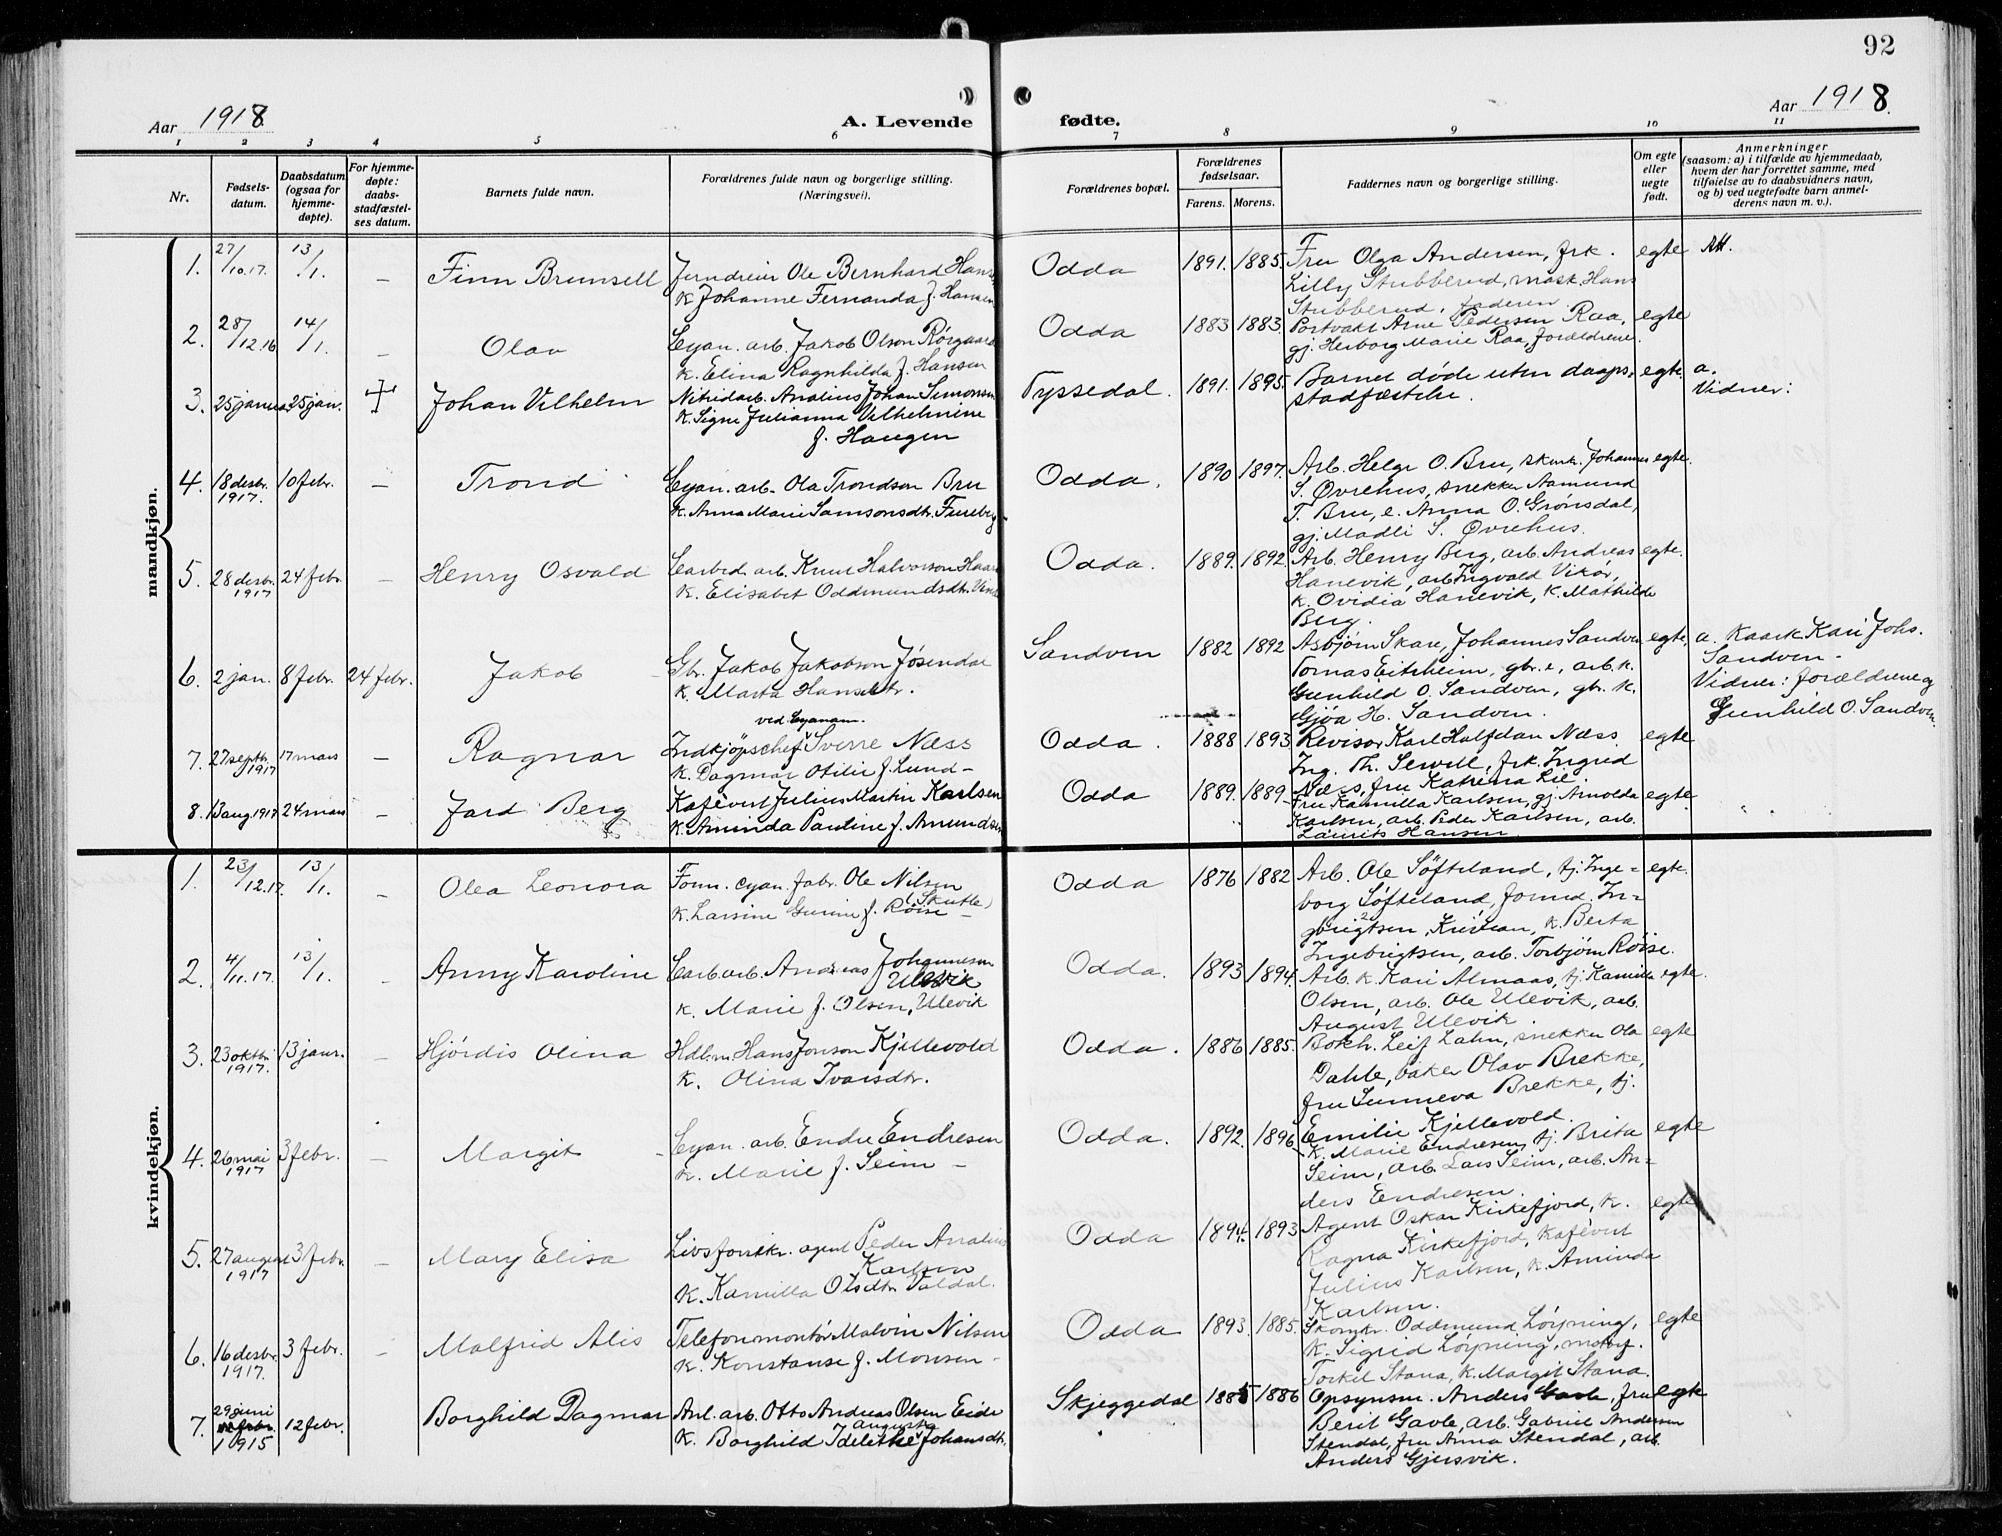 92
Aar 1918
A. Levende fødte.
Aar 1918.
1 2 3 4 5 6 7 8 9 10 11
Nr.
Fødsels-
datum.
Daabsdatum
(ogsaa for
hjemme-
døpte).
For hjemme-
døpte:
daabs-
stadfæstel-
ses datum.
Barnets fulde navn.
Forældrenes fulde navn og borgerlige stilling.
(Næringsvei).
Forældrenes bopæl.
Forældrenes
fødselsaar.
Farens. Morens.
Faddernes navn og borgerlige stilling.
Om egte
eller
uegte
født.
Anmerkninger
(saasom: a) i tilfælde av hjemmedaab,
hvem der har forrettet samme, med
tilføielse av to daabsvidners navn,
og b) ved uegtefødte barn anmel-
derens navn m. v.).
mandkjøn.
1. 27/10.17. 13/1. – Finn Brunsell
Jerndreier Ole Bernhard Hans
k. Johanne Fernanda f. Hansen
Odda 1891. 1885.
Fru Olga Andersen, frk.
Lilly Stubberud, mask. Hans
Stubberud, faderen.
egte Att.
2. 28/12.16 14/1. – Olav
Cyan. arb. Jakob Olson Rørgaard
k. Elina Ragnhilda f. Hansen
Odda 1883 1883
Portvakt Arne Pedersen Raa,
gj. Herborg Marie Raa, forældrene.
egte
3. 25 januar 25 jan. Johan Vilhelm
Nitridarb. Analius Johan Simonsen
k. Signe Julianna Vilhelmine
f. Haugen
Tyssedal. 1891. 1895.
Barnet døde uten daaps-
stadfæstelse.
egte a.
Vidner:
4. 18 desbr. 1917. 10 febr. – Trond
Cyan. arb. Ola Trondson Bru
k. Anna Marie Samsonsdtr. Fureberg
Odda. 1890 1897.
Arb. Helge O. Bru, Johannes
S. Øvrehus, snekker Aamund
T. Bru, e. Anna O. Grønsdal,
gj. Madli S. Øvrehus.
egte.
5. 28 desbr. 1917 24 febr. – Henry Osvald
Carbid arb. Knut Halvorson
k. Elisabet Oddmundsdtr.
Odda. 1889. 1892
Arb. Henry Berg, arb. Andreas
Hanevik, arb. Ingvald Vikør,
k. Ovidia Hanevik, k. Mathilde
Berg.
egte.
6. 2 jan. 8 febr. 24 febr. Jakob
Gbr. Jakob Jakobson Jøsendal
k. Marta Hansdtr.
Sandven 1882 1892
Asbjørn Skare, Johannes Sandven
Tomas Eitrheim, gbr.e, arb. k.
Gunhild O. Sandven, gbr. k.
Gjøa H. Sandven.
egte. a. Kaark Kari Johs.
Sandven.
Vidner: forældrene og
Gunhild O. Sandven.
7. 27 septbr. 1917 17 mars – Ragnar
ved Cyanam.
Indkjøpschef Sverre Næss
k. Dagmar Otilie f. Lund –
Odda. 1888 1893.
Revisor Karl Halfdan Næss
Ing. Th. Sewell, frk. Ingrid
Næss, fru Katrina Lie.
egte
8. 13 aug. 1917 24 mars – Jard Berg
Kafévert Julius Martin Karlsen
k. Aminda Pauline f. Amundsen
Odda 1889. 1889
Fru Kamilla Karlsen, gj. Arnolda
Karlsen, arb. Peder Karlsen, arb.
Laurits Hansen
egte
kvindekjøn.
1. 23/12.17. 13/1. – Olea Leonora
Form. cyan. fabr. Ole Nilsen
(Skutle)
k. Larsine Gurine f. Røise –
Odda 1876 1882
Arb. Ole Søfteland, tj. Inge=
borg Søfteland, formd. In-
gbrigtsen, Kristian, k. Berta
Ingebrigtsen, arb. Torbjørn Røise.
egte.
2. 4/11.17. 13/1. – Anny Karoline
Carb. arb. Andreas Johannesen
Ulevik
k. Marie f. Olsen, Ulevik
Odda. 1893 1894.
Arb. k. Kari Almaas, tj. Kamilla
Olsen, arb. Ole Ulevik, arb.
August Ulevik.
egte.
3. 23 oktbr. 1917. 13 janr. – Hjørdis Olina
Hdlm. Hans Jonson Kjellevold
k. Olina Ivarsdtr.
Odda. 1886 1885.
Bokh. Leif Lahn, snekker Ola
Dahle, baker Olav Brekke,
fru Sunneva Brekke, tj.
Emilie Kjellevold.
egte
4. 26 mai 1917 3 febr. – Margit
Cyan. arb. Endre Endresen
k. Marie f. Seim –
Odda. 1892. 1896
k. Marie Endresen, tj. Brita
Seim, arb. Lars Seim, arb. An-
ders Endresen.
egte
5. 27 august 1917 3 febr. – Mary Elisa
Livsforsikr. agent Peder Analius
Karlsen
k. Kamilla Olsdtr. Valdal.
Odda 1894. 1893
Agent Oskar Kirkefjord, k.
Ragna Kirkefjord, kafévert
Julius Karlsen, k. Aminda
Karlsen.
egte
6. 16 desbr. 1917. 3 febr. – Malfrid Alis
Telefonmontør Malvin Nilsen
k. Konstanse f. Monsen –
Odda 1893. 1885.
Skomkr. Oddmund Løyning,
k. Sigrid Løyning,
Torkil Stana, k. Margit Stana.
egte
7. 29 juni 1915 12 febr. Borghild Dagmar
Anl. arb. Otto Andreas Olsen Eide
Augusta
k. Borghild Idelethe Johansdtr.
Skjeggedal 1885 1886
Opsynsm. Anders Gavle, fru
Berit Gavle, arb. Gabriel Andersen
Stendal, fru Anna Stendal, arb.
Anders Gjersvik.
egte